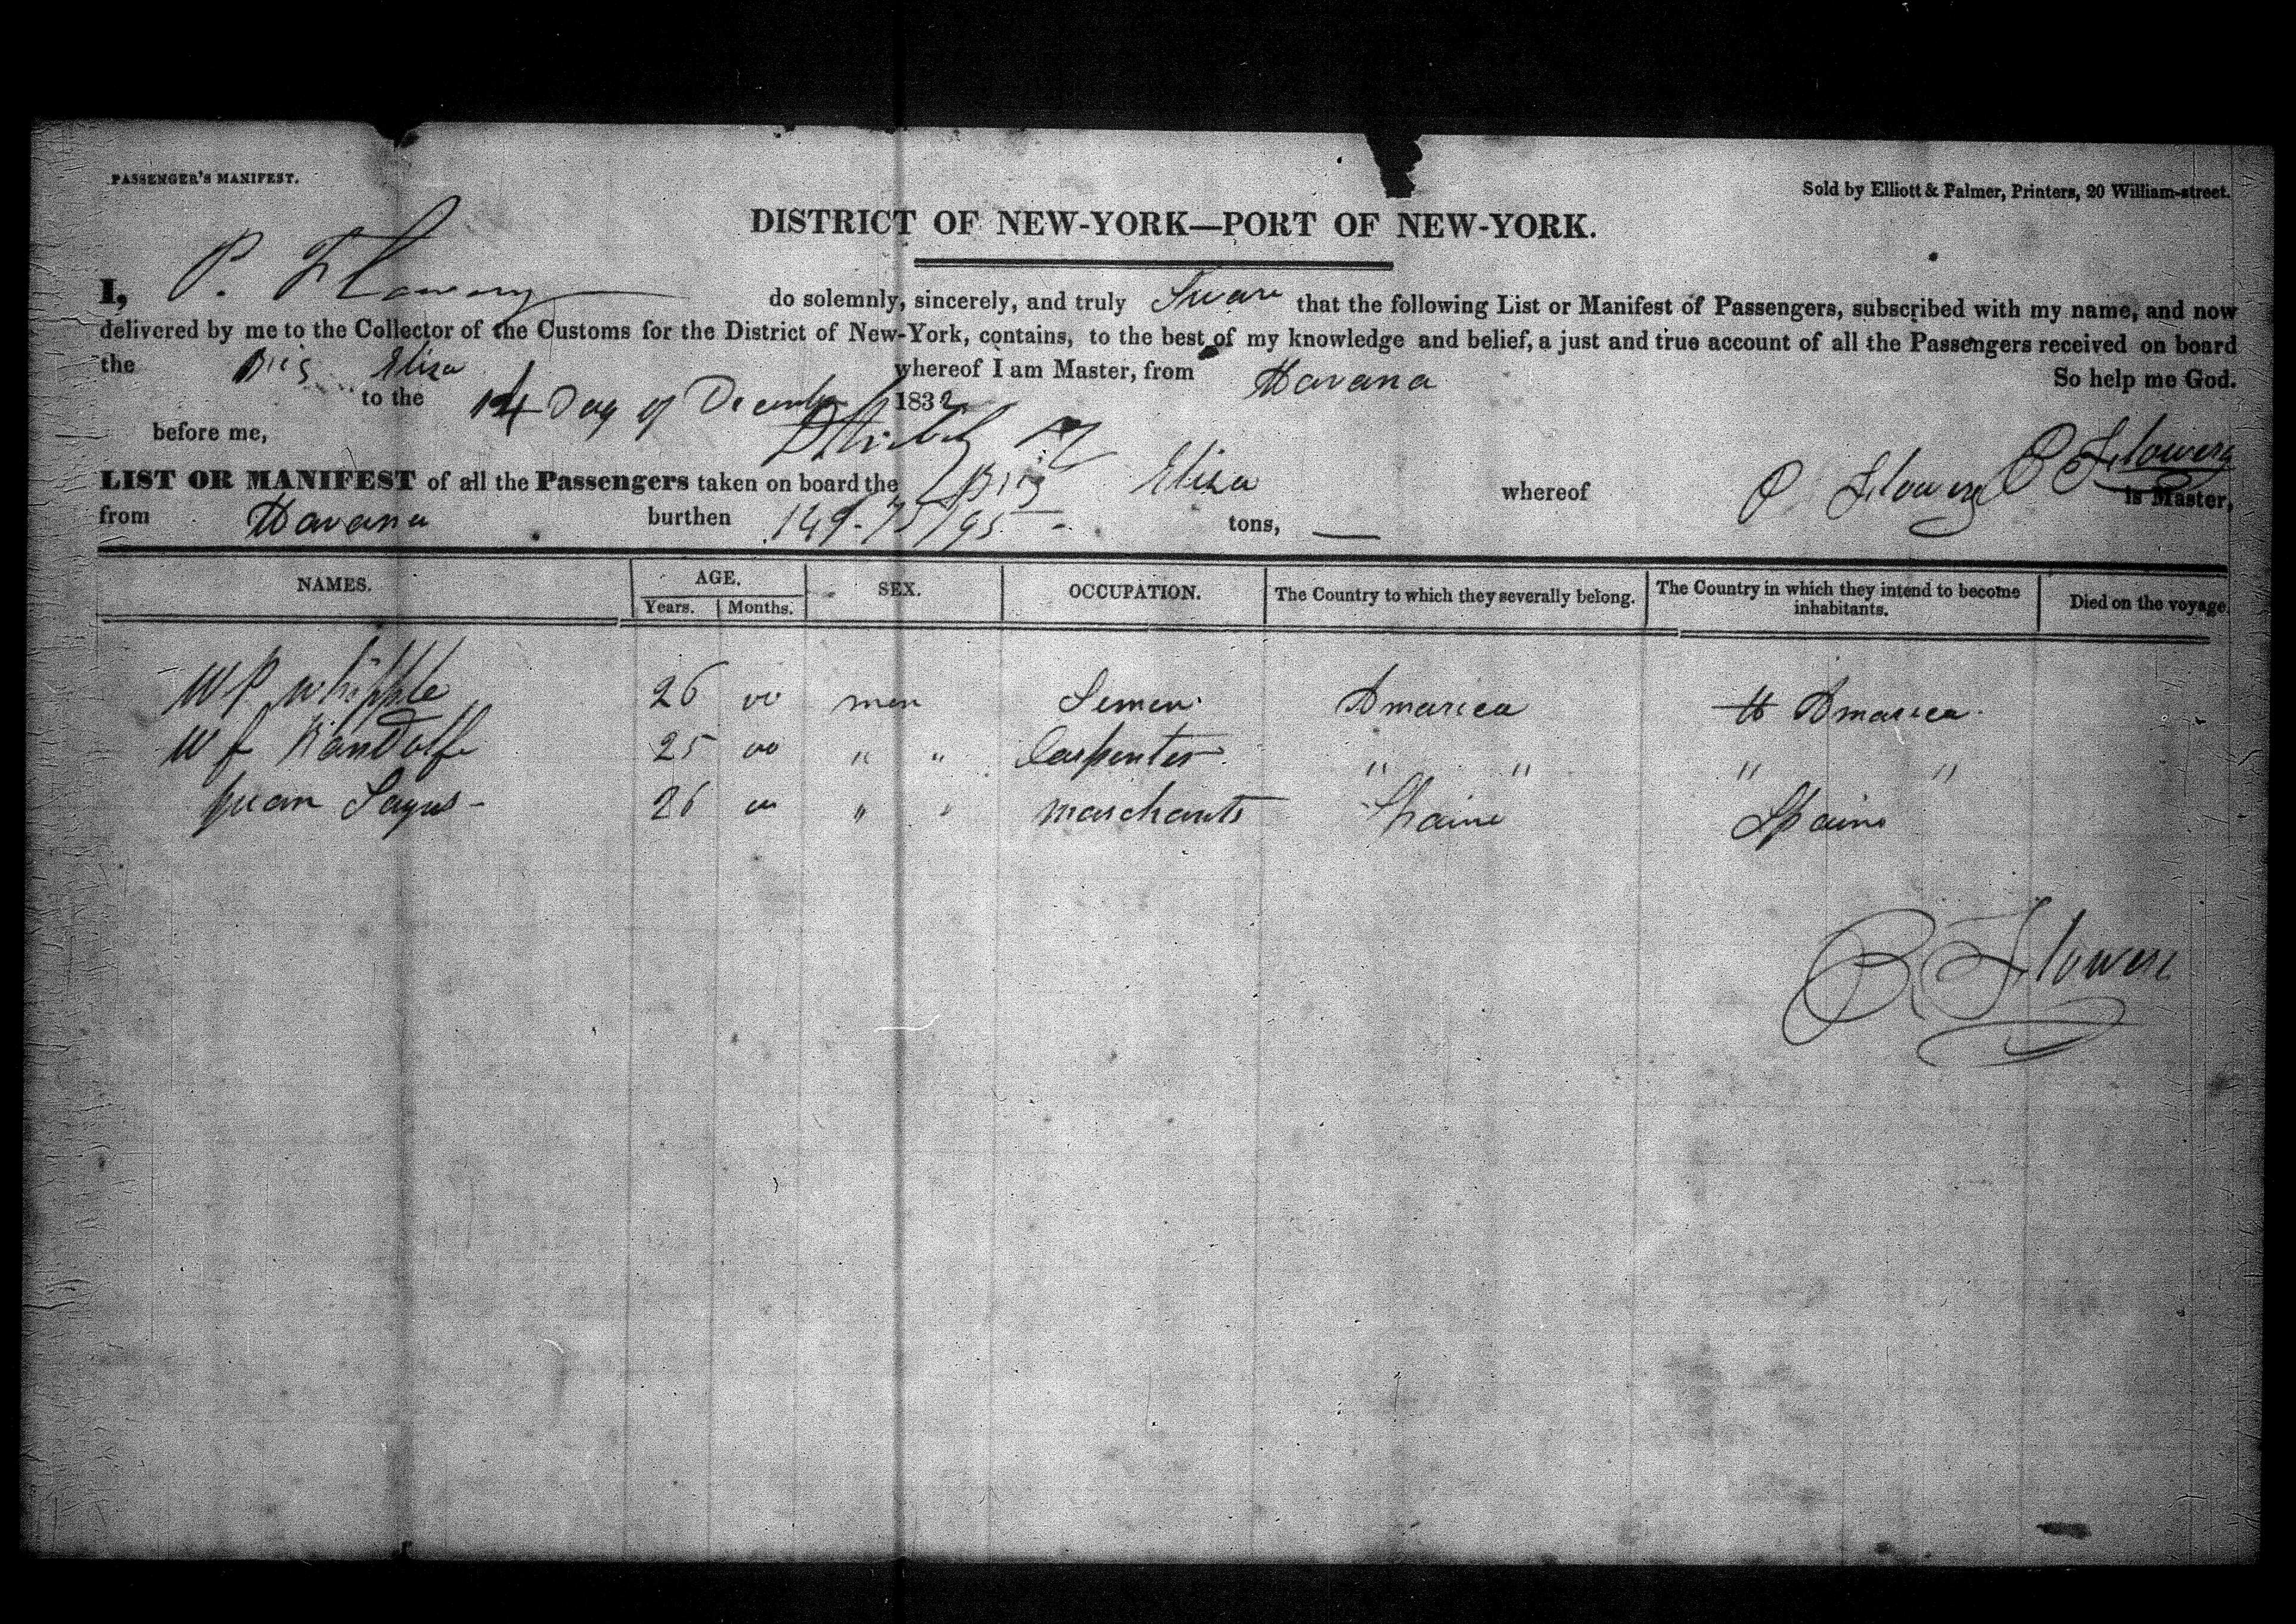 PASSENGER'S MANIFEST.
Sold by Elliott & Palmer, Printers, 20 William-street.
DISTRICT OF NEW-YORK—PORT OF NEW-YORK.
I, P. Flowery do solemnly, sincerely, and truly Sware that the following List or Manifest of Passengers, subscribed with my name, and now
delivered by me to the Collector of the Customs for the District of New-York, contains, to the best of my knowledge and belief, a just and true account of all the Passengers received on board
the Brig Eliza whereof I am Master, from Havana
to the 14 Day of December 1832 So help me God.
before me,
P Flowery
LIST OR MANIFEST of all the Passengers taken on board the Brig Eliza whereof P Flowery is Master,
from Havana burthen 149-75/95 tons, —
NAMES. AGE. SEX. OCCUPATION. The Country to which they severally belong. The Country in which they intend to become inhabitants. Died on the voyage.
Years. Months.
W P Whipple 26 00 men Semen America America
W J Randolfe 25 00 " " Carpenter " " " "
Juan 26 00 " " marchants Spaine Spaine
P Flowere